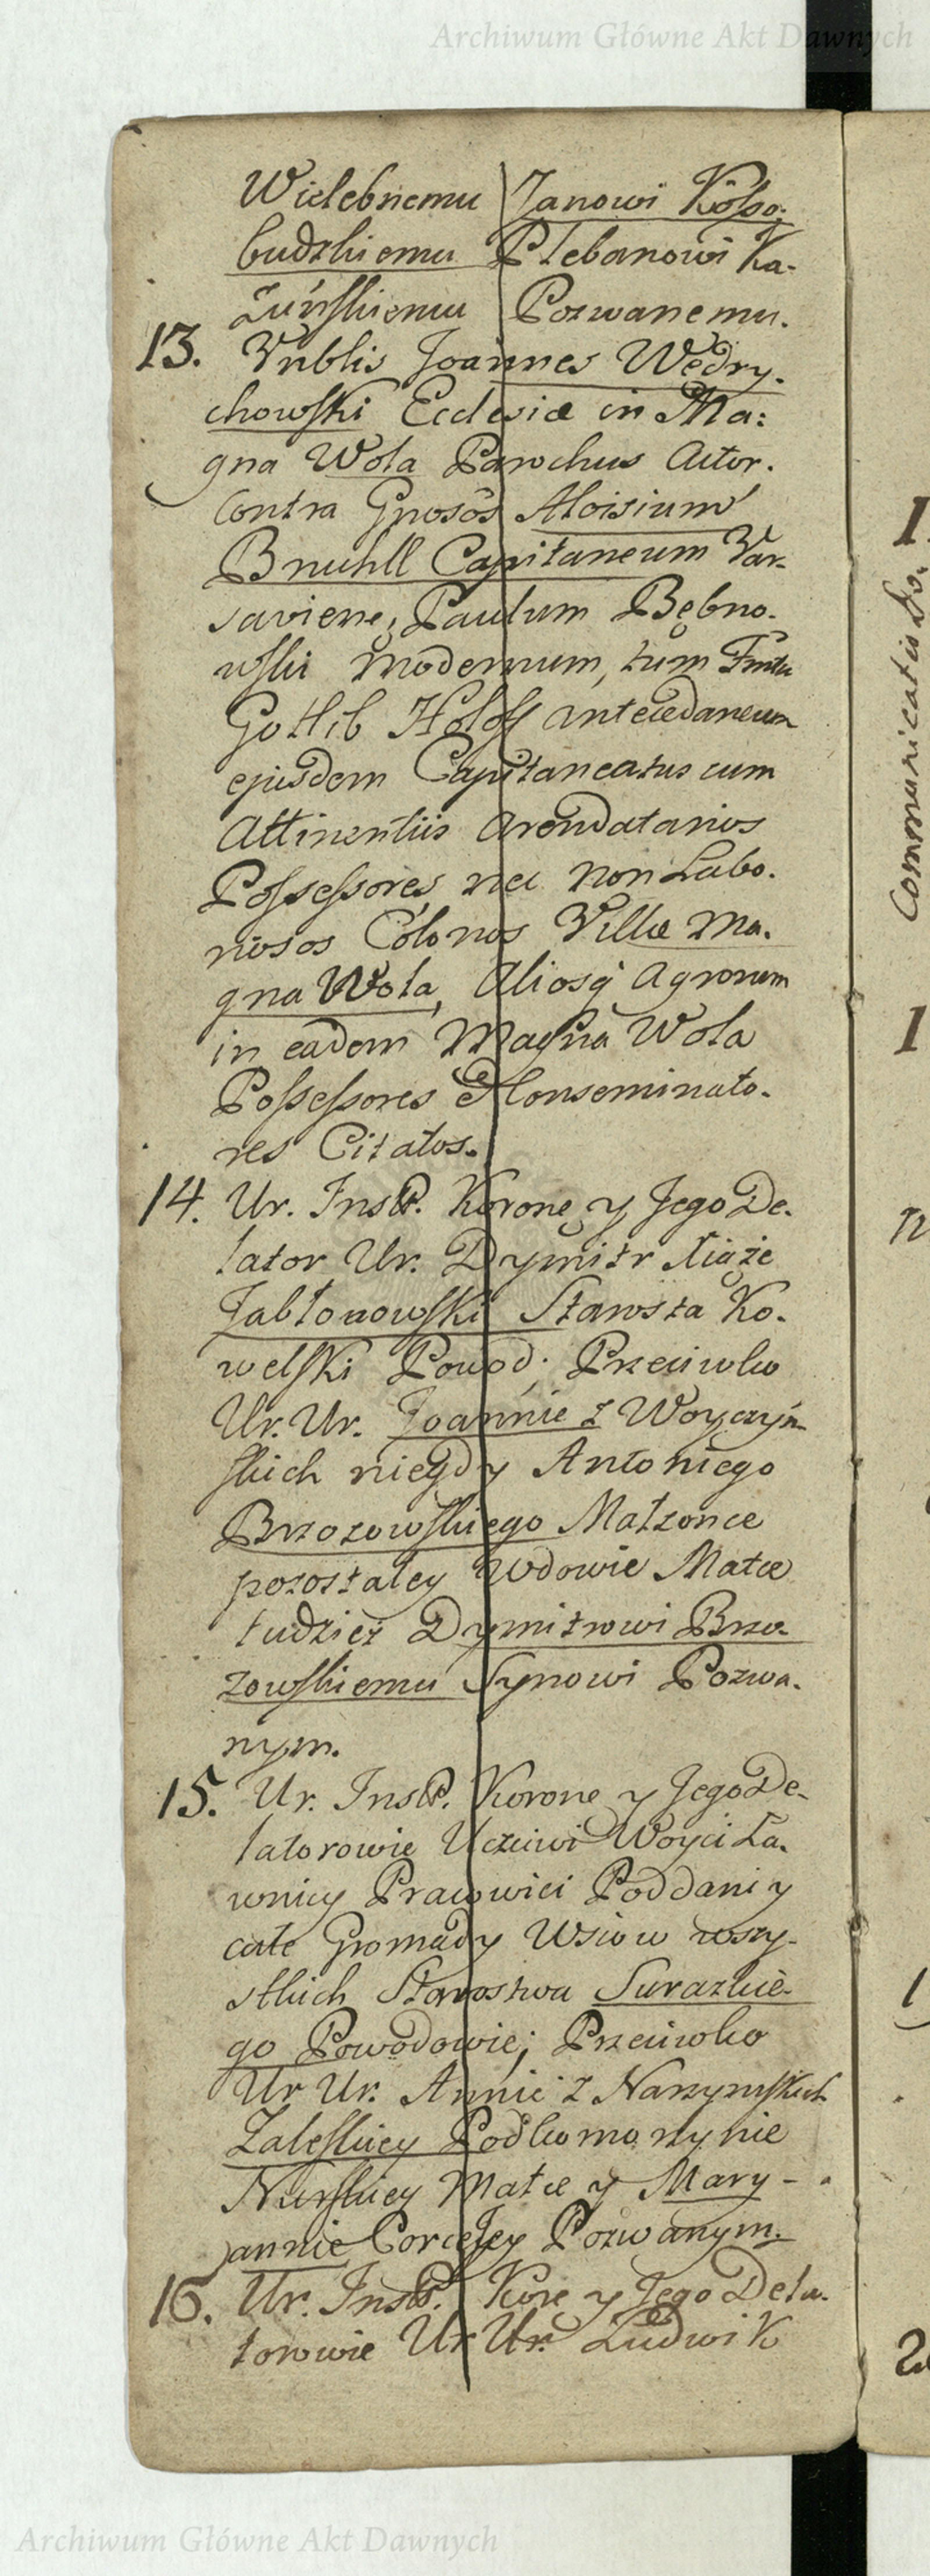 Archiwum Główne Akt Dawnych
Wielebnemu Janowi Kosso:
budzkiemu Plebanowi Ka-
zuńskiemu Pozwanemu.
13. Vnblis Joannes Wędry-
chowski Ecclesiæ in Ma:
gna Wola Parochus Actor.
Contra Gnosos Aloisium
Bruhll Capitaneum Var-
savien, Paulum Bębno-
wski Modernum, tum
Gottlib Holoff antecedaneum
ejusdem Capitaneatus cum
Attinentiis Arendatarios
Possessores, nec non Labo-
riosos Colonos Villæ Ma-
gna Wola, Aliosq Agrorum
in eadem Magna Wola
Possessores Conseminato-
res Citatos.
14. Ur. Inst. Koronę y Jego De-
lator Ur. Dymitr Xiąże
Jabłonowski Starosta Ko-
welski Powod; Przeciwko
Ur. Ur. Joannie z Woyczyń-
skich niegdy Antoniego
Brzozowskiego Małżonce
pozostałey Wdowie Matce
tudzież Dymitrowi Brzo-
zowskiemu Synowi Pozwa-
nym.
15. Ur. Inst. Korone y Jego De-
latorowie Uczciwi Woyci Ła-
wnicy Pracowici Poddani y
całe Gromady Wsiow wszy-
stkich Starostwa Surazkie-
go Powodowie; Przeciwko
Ur Ur. Annie z Narzymskich
Zaleskiey Podkomorzynie
Nurskiey Matce y Mary-
annie Corcejey Pozwanym.
16. Ur. Inst. Kore y Jego Dela-
torowie Ur Ur. Ludwik
Communicatis
Archiwum Główne Akt Dawnych